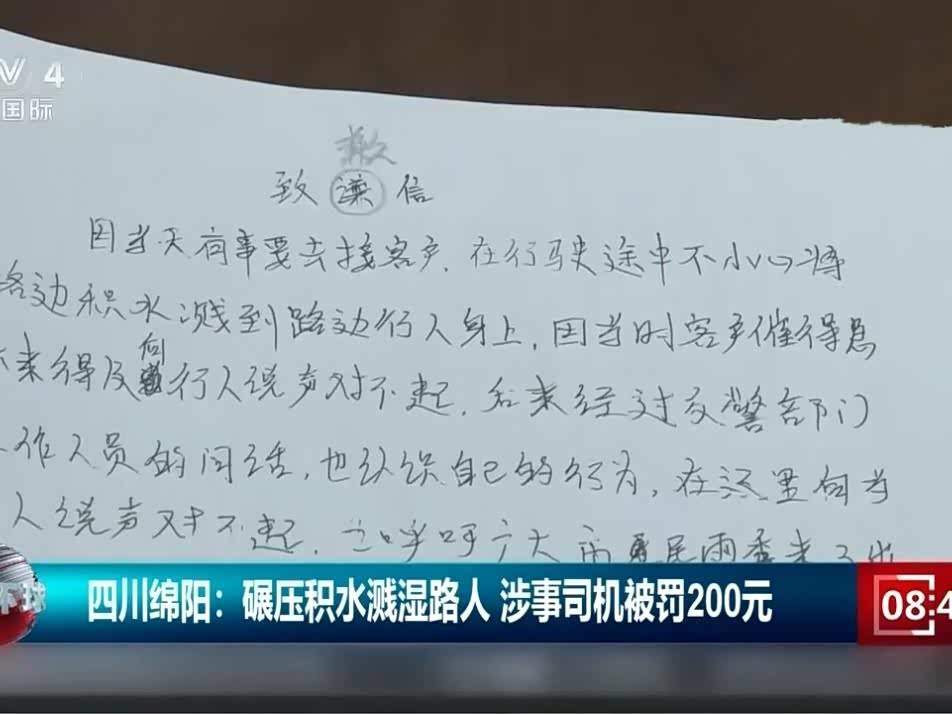 V 4
国际
歉
致 谦 信
因当天有事要去接客户,在行驶途中不小心将
路边积水溅到路边行人身上,因当时客户催得急
来得及向行人说声对不起,后来经过交警部门
作人员的问话,也认识自己的行为,在这里向当
人说声对不起,也呼吁广大市民雨季来了
环球
四川绵阳:碾压积水溅湿路人 涉事司机被罚200元
08:4